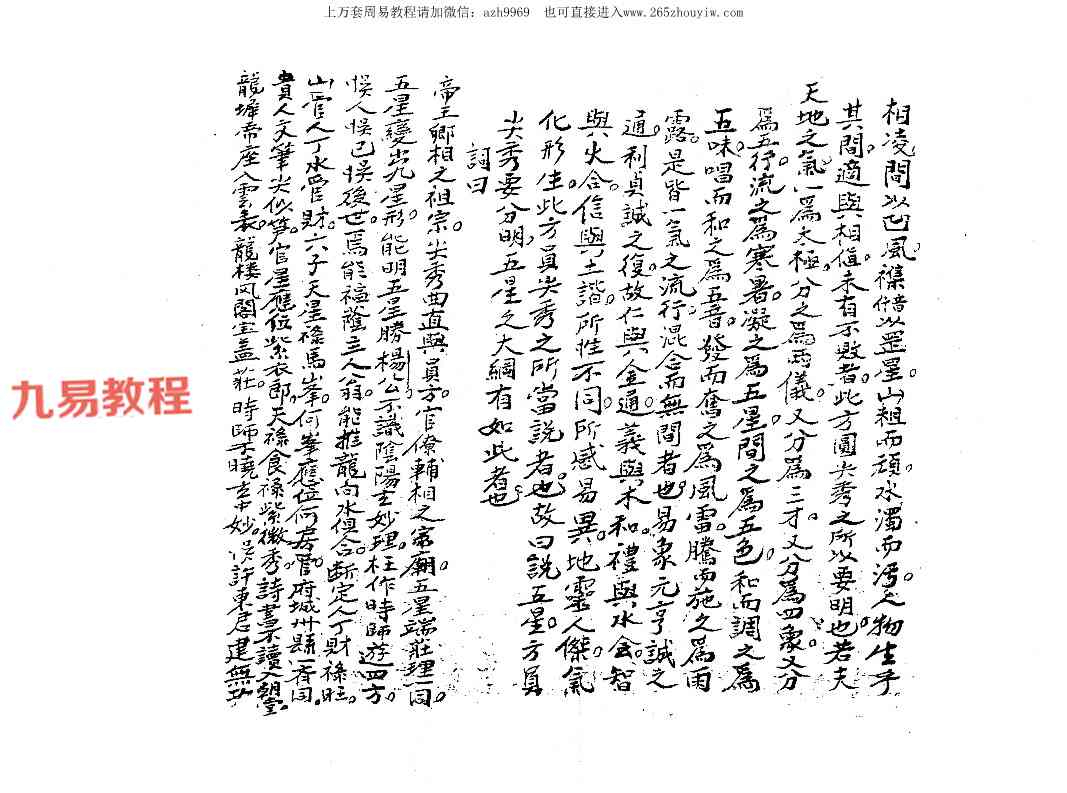 上万套周易教程请加微信：azh9969　也可直接进入www.265zhouyiw.com
相凌間以凶風襍借以罡星山粗而頑水濁而污人物生乎
其間適與相值未有不敗者此方圓尖秀之所以要明也若夫
天地之氣一為太極分之為兩儀又分為三才又分為四象又分
為五行流之為寒暑凝之為五星間之為五色和而調之為
五味唱而和之為五音發而奮之為風雷騰而施之為雨
露是皆一氣之流行混合而無間者也易象元亨誠之
通利貞誠之復故仁與金通義與木和禮與水會智
與火合信與土諧所性不同所感易異地靈人傑氣
化形生此方員尖秀之所當説者也故曰説五星方員
尖秀要分明五星之大綱有如此者也
詞曰
帝王鄉相之祖宗尖秀曲直與員方官僚輔相之家廟五星端莊理一同
五星變出九星形能明五星勝楊公不識陰陽玄妙理枉作時師遊四方
悮人悮己悮後世焉能福蔭主人翁能推龍向水俱合断定人丁財祿旺
山管人丁水管財六子天星祿馬峯何峯應位何房管府城州縣一斉同
貴人文筆尖似笋官星應位紫衣郎天祿食祿紫微秀詩書不讀入朝堂
龍墀帝座入雲表龍楼凤閣宝盖莊時師不曉玄中妙误許東君建無功
九易教程